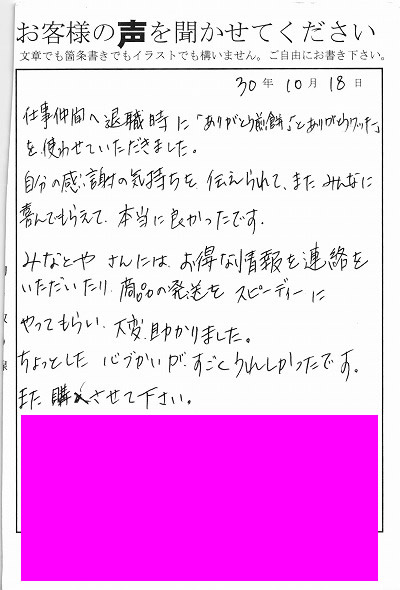 お客様の声を聞かせてください
文章でも箇条書きでもイラストでも構いません。ご自由にお書き下さい。
30年10月18日
仕事仲間へ退職時に「ありがとう煎餅」とありがとうクッキー」
を使わせていただきました。
自分の感謝の気持ちを伝えられて、また みんなに
喜んでもらえて、本当に良かったです。
みなとや さんには、お得な情報を連絡を
いただいたり、商品の発送を スピーディーに
やってもらい、大変助かりました。
ちょっとした 心づかいが、すごくうれしかったです。
また 購入させて下さい。